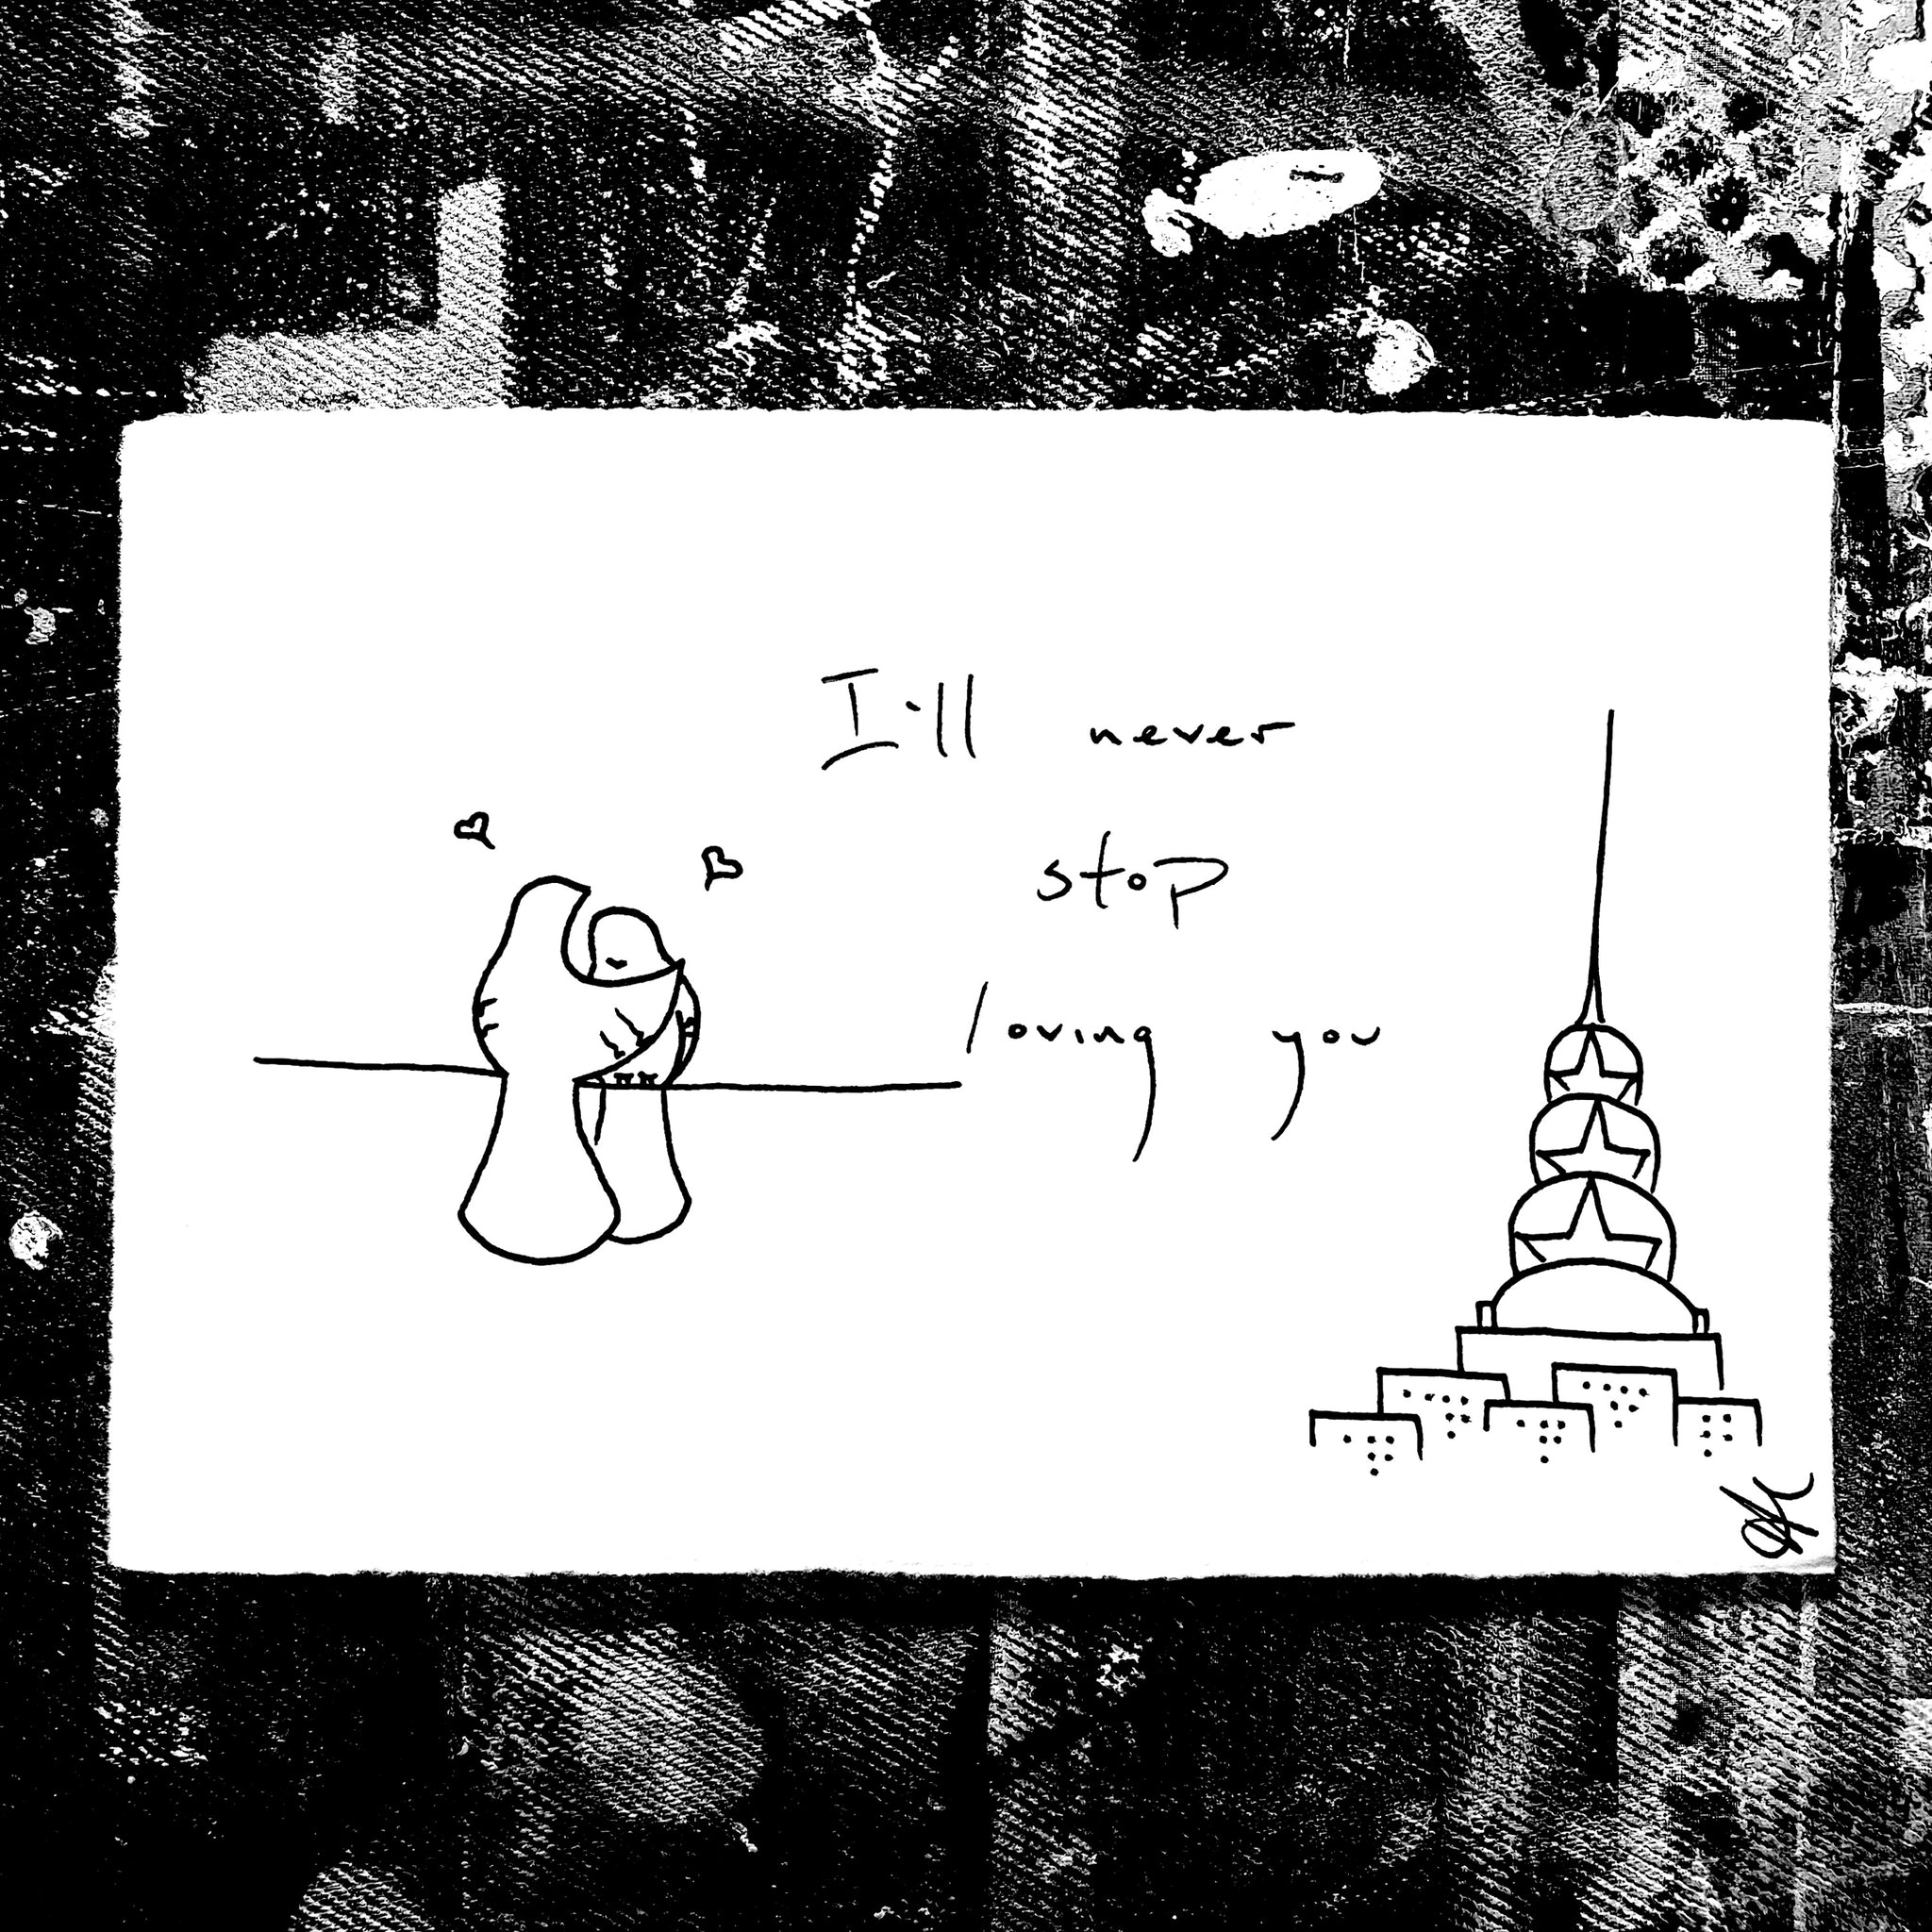 I'll never
stop
loving you